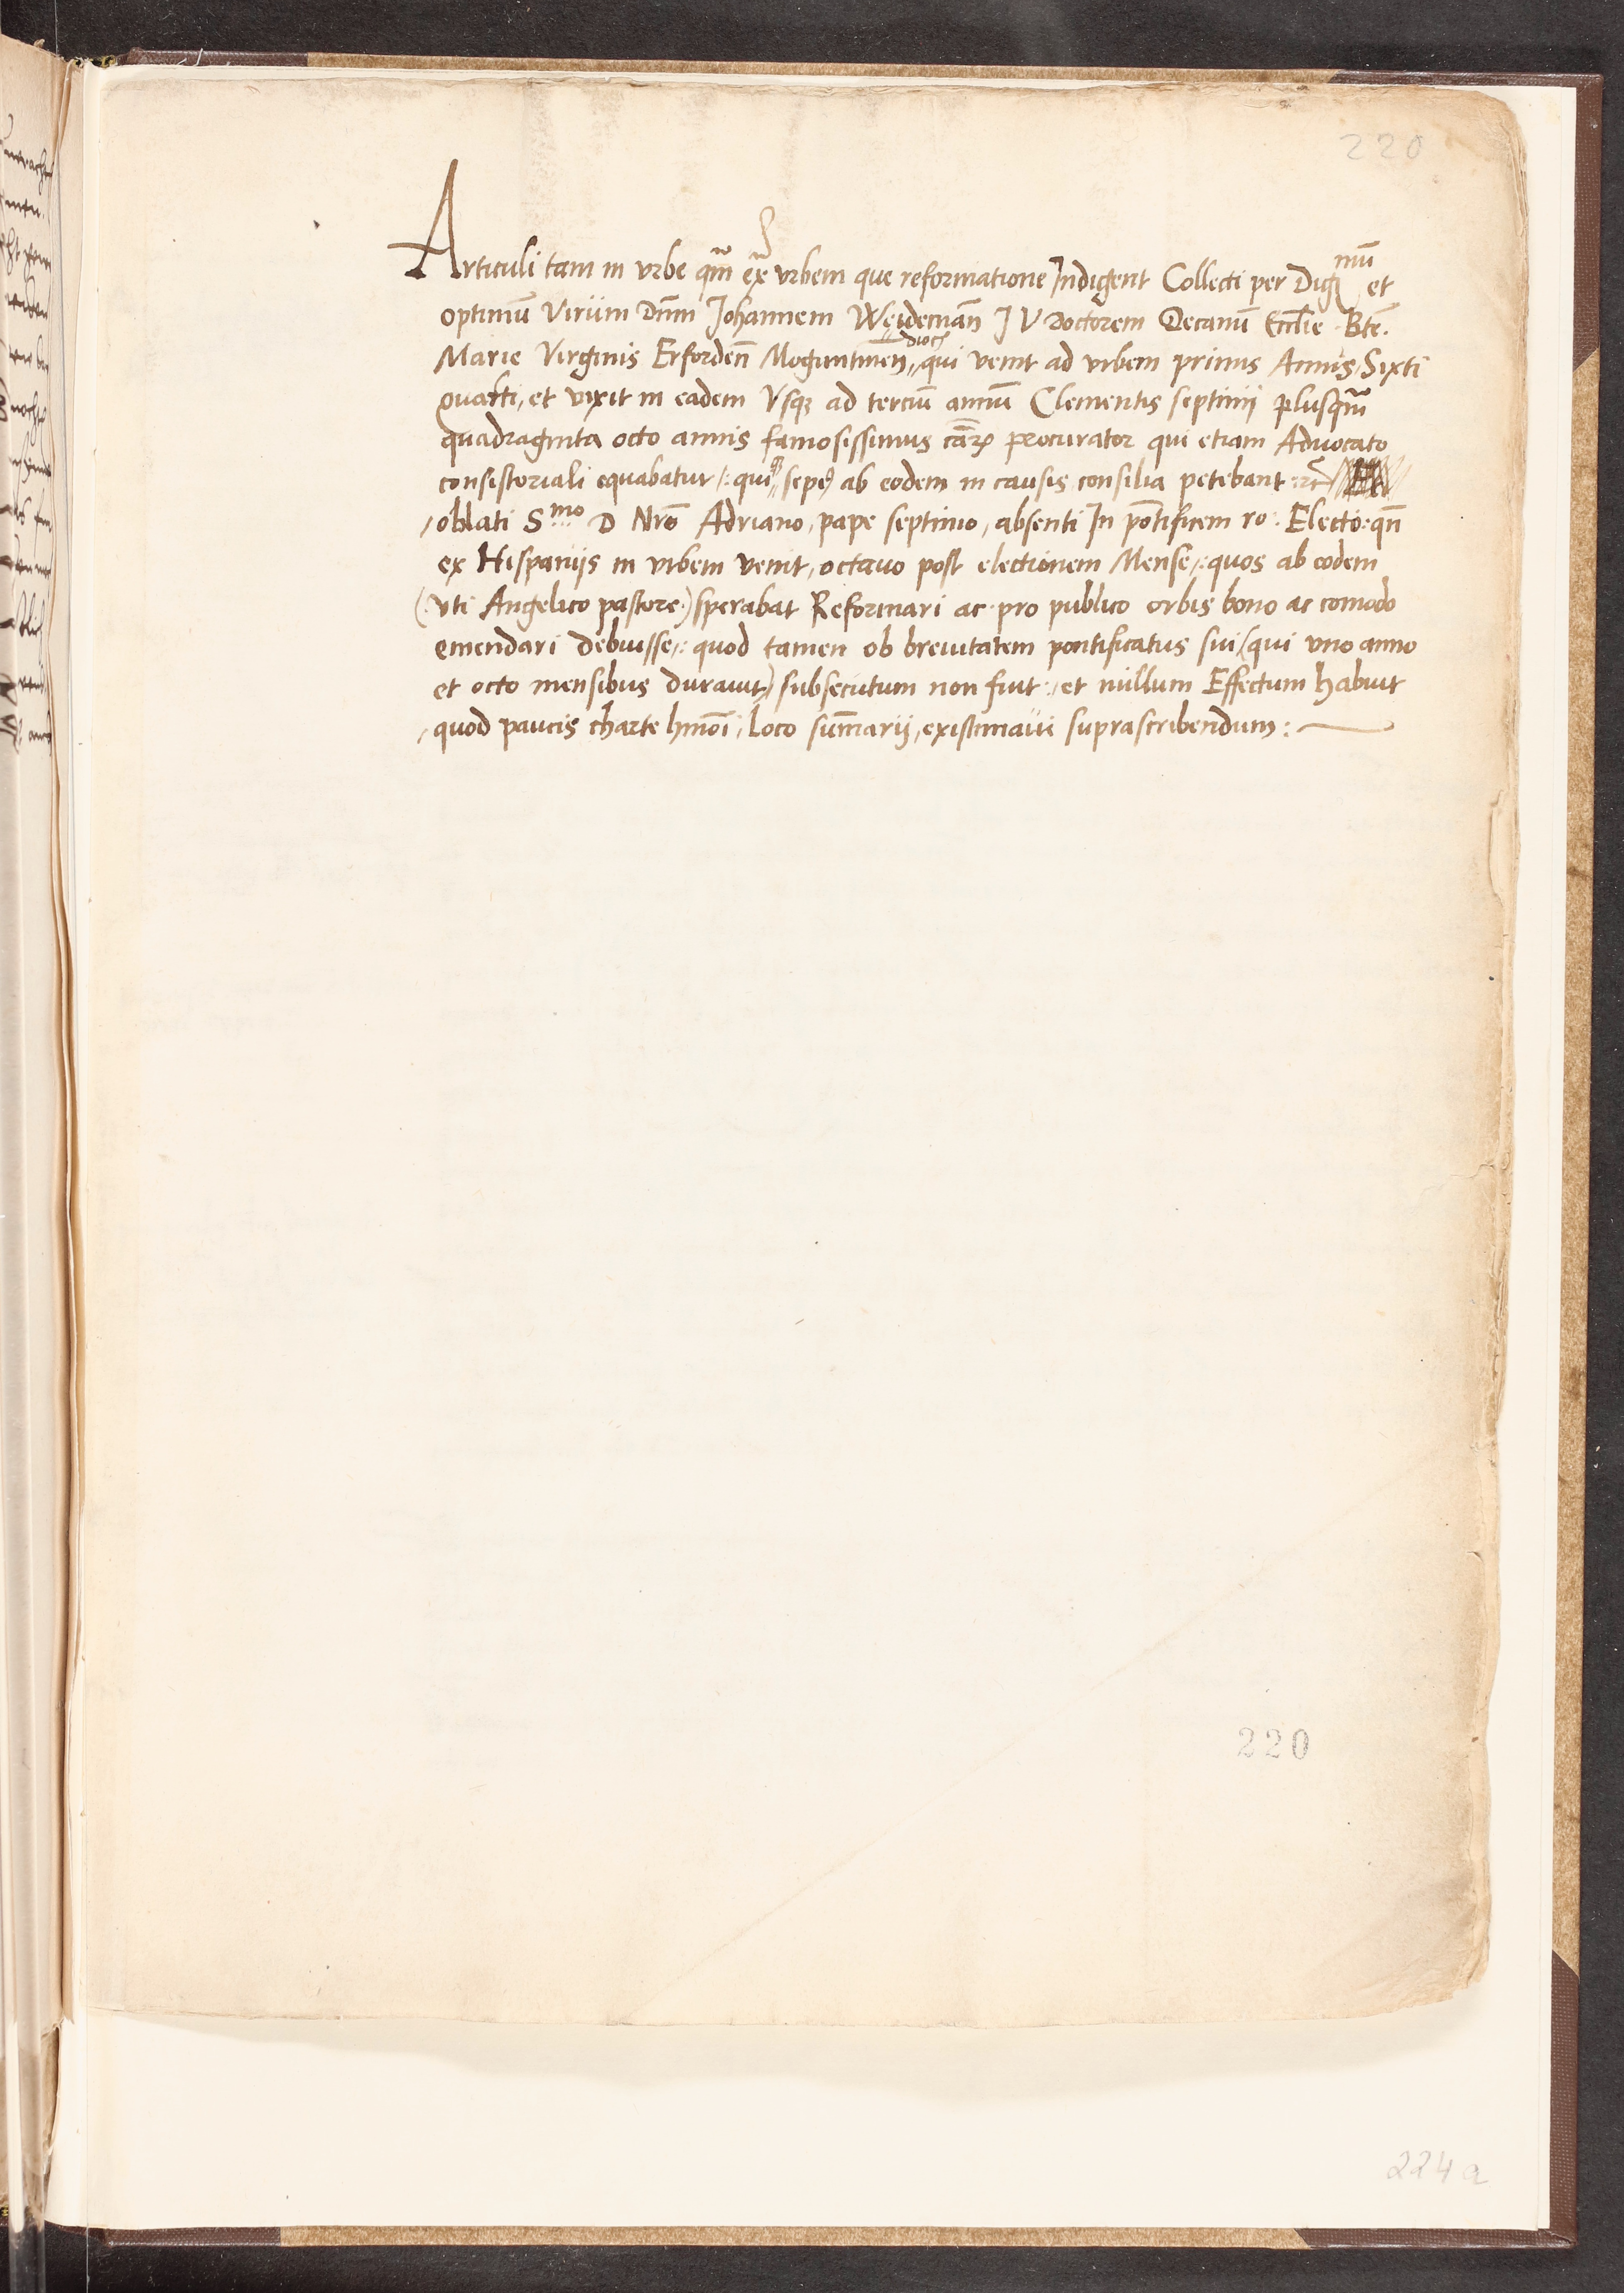 220
Articuli tam in vrbe qm̃ ex̃ vrbem que reformatione Indigent Collecti per Dig mũ et
optimũ Virum Dñm Johannem Weidemañ J V Doctorem Decanũ Eccl̃ie Btẽ.
Marie Virginis Erfordeñ Moguntineñ dioc̃ qui venit ad vrbem primis Annis Sixti
quarti, et vixit in eadem Vsq; ad terciũ annũ Clementis septimi plusqm̃
quadraginta octo annis famosissimus cãrꝝ procurator qui etiam Advocato
consistoriali equabatur /: qui sepe ab eodem in causis consilia petebant : ⁊c̃
/oblati S.mo D Nrõ Adriano, pape septimo, absenti In põtificem ro: Electo: qñ
ex Hispanijs in vrbem venit, octauo post electionem Mense,: quos ab eodem
(: vti Angelico pastore :) sperabat Reformari ac pro publico orbis bono ac comodo
emendari debuisse,: quod tamen ob breuitatem pontificatus sui (qui vno anno
et octo mensibus durauit) subsecutum non fuit :, et nullum Effectum habuit
, quod paucis charte hmõi, Loco sum̃arij, existimaui suprascribendum :
220
224a